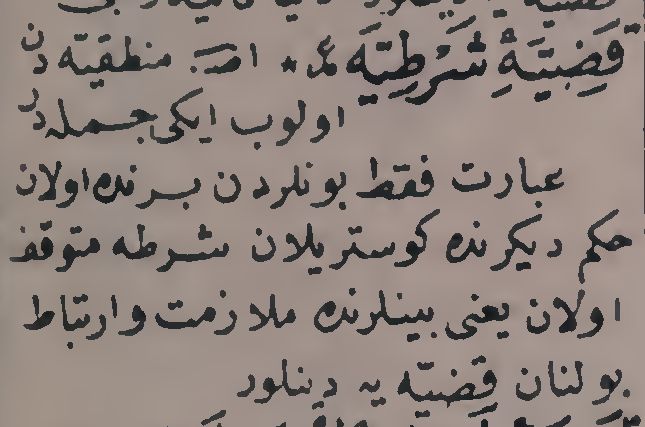 قَضِيَّهٔ شَرْطِيَّه ع * اصـ. منطقیه دن
اولوب ایکی جمله دن
عبارت فقط بونلردن برنده اولان
حکم دیکرنده کوستریلان شرطه متوقف
اولان یعنی بینلرنده ملازمت وارتباط
بولنان قضیّه یه دینلور